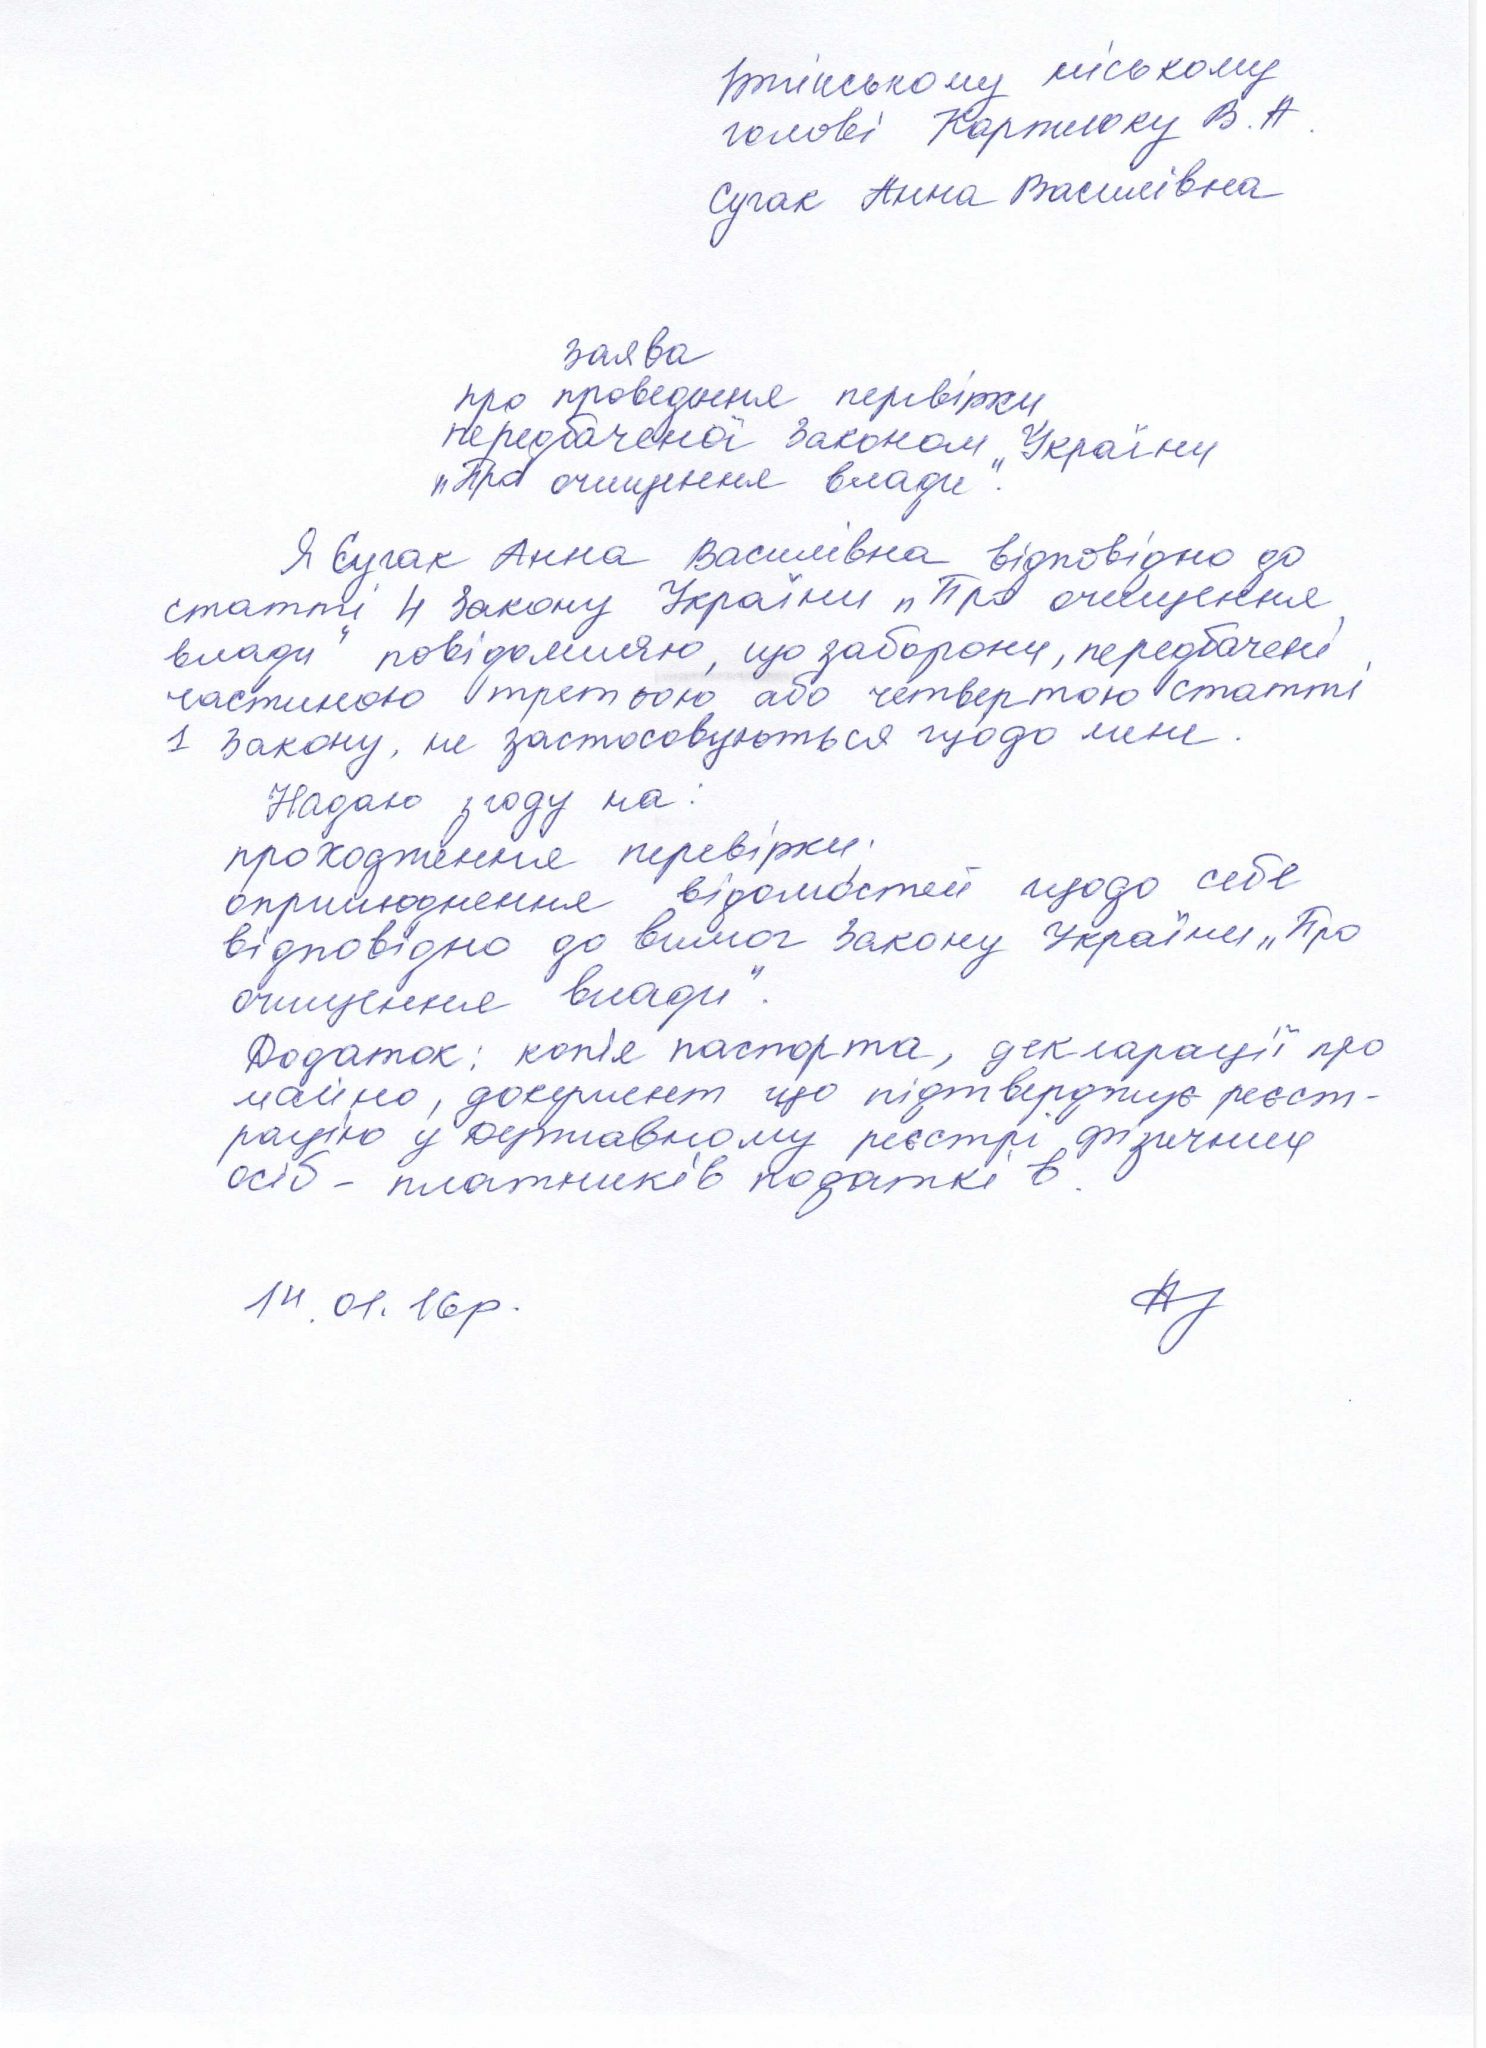 Ірпінському міському
голові Карплюку В.А.
Сугак Анна Василівна
Заява
про проведення перевірки
передбаченої Законом „України
„Про очищення влади".
Я Сугак Анна Василівна відповідно до
статті 4 Закону України „Про очищення
влади" повідомляю, що заборони, передбачені
частиною третьою або четвертою статті
1 Закону, не застосовуються щодо мене.
Надаю згоду на:
проходження перевірки;
оприлюднення відомостей щодо себе
відповідно до вимог Закону України „Про
очищення влади".
Додаток: копія паспорта, декларації про
майно, документ що підтверджує реєст-
рацію у Державному реєстрі фізичних
осіб - платників податків.
14.01.16р.